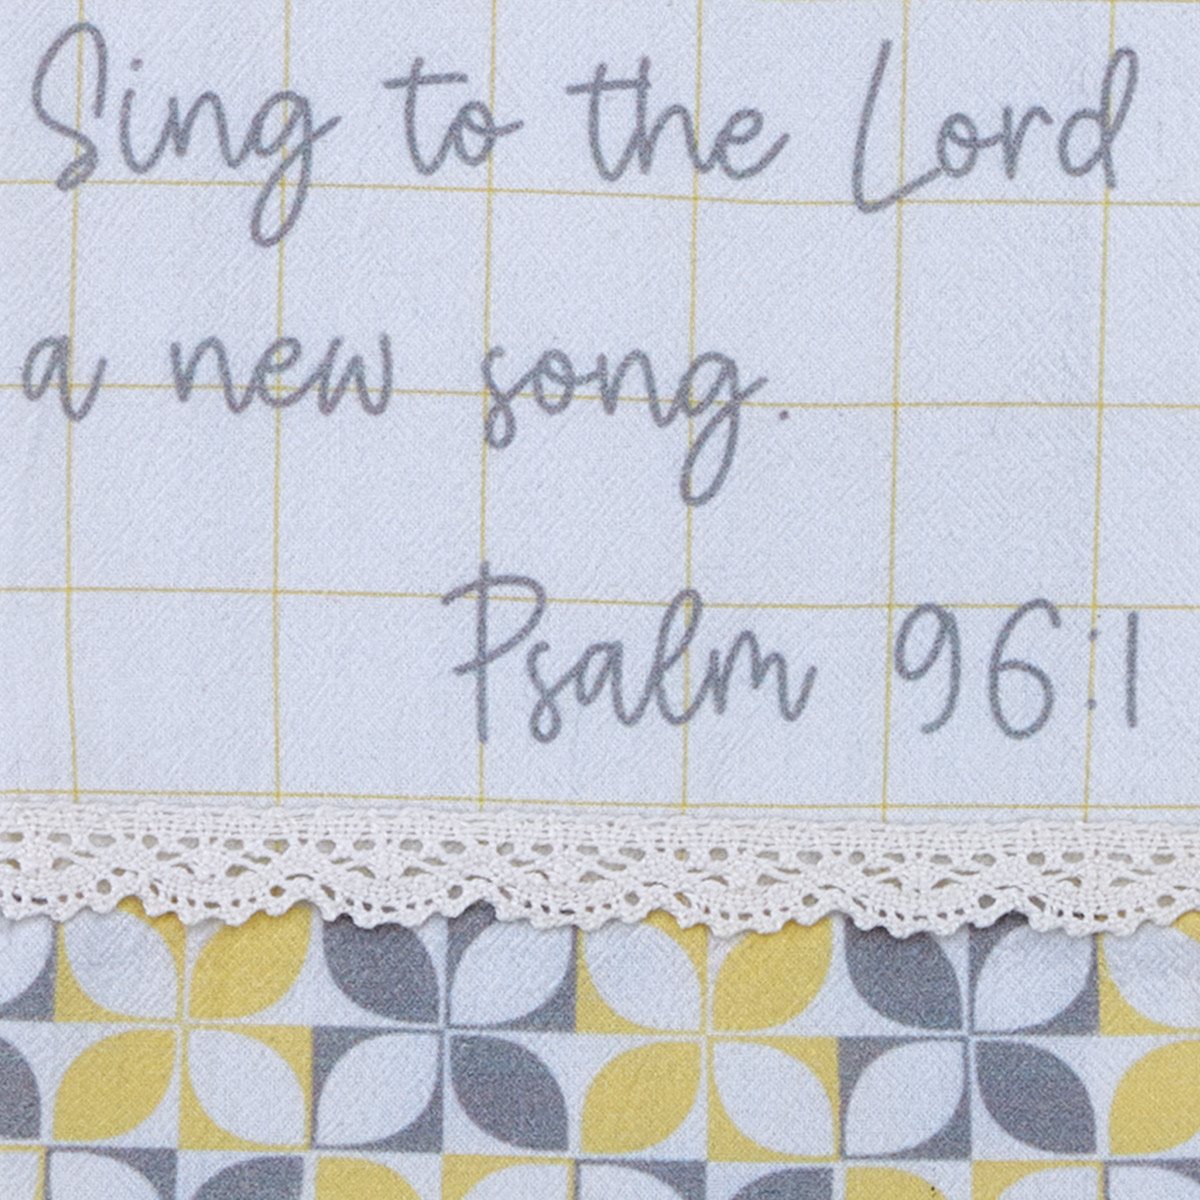 Sing to the Lord
a new song.
Psalm 96:1